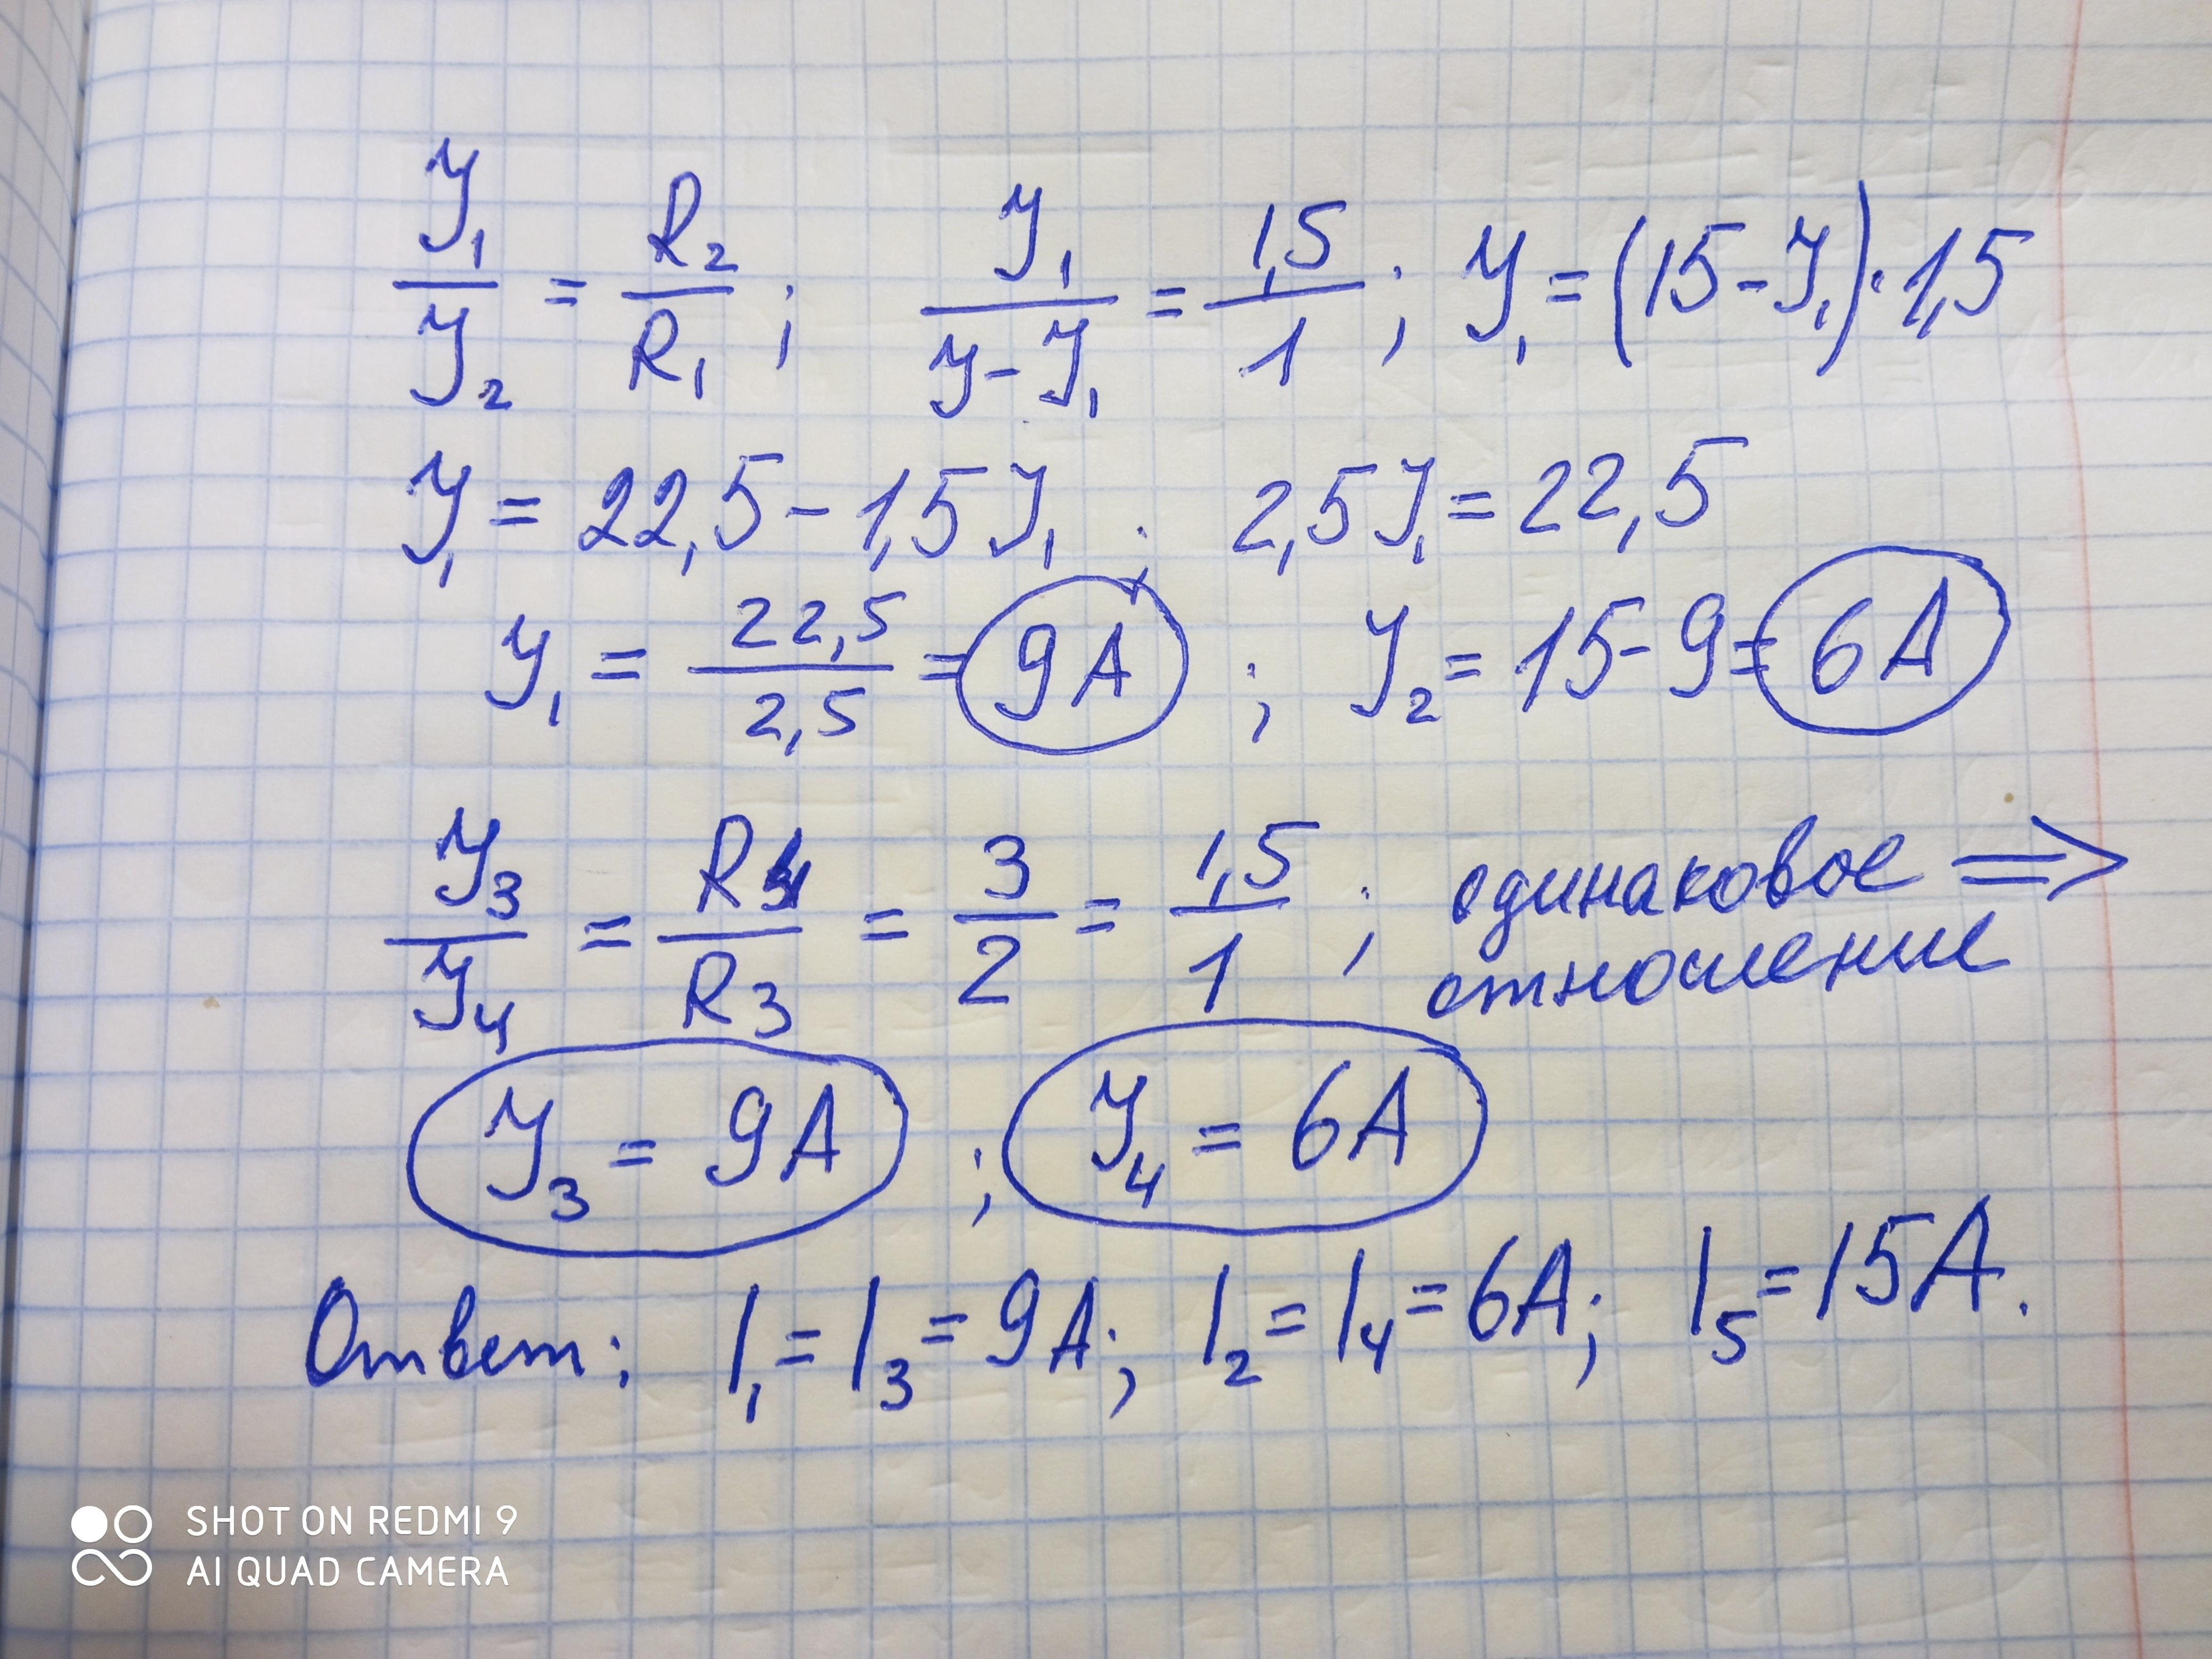 У₁/У₂ = R₂/R₁ ; У₁/(У-У₁) = 1,5/1 ; У₁ = (15-У₁)·1,5
У₁ = 22,5 - 1,5У₁ ; 2,5У₁ = 22,5
У₁ = 22,5/2,5 = 9А ; У₂ = 15-9 = 6А
У₃/У₄ = R₄/R₃ = 3/2 = 1,5/1 ; одинаковое ⇒
отношение
У₃ = 9А ; У₄ = 6А
Ответ: I₁ = I₃ = 9А; I₂ = I₄ = 6А; I₅ = 15А.
SHOT ON REDMI 9
AI QUAD CAMERA